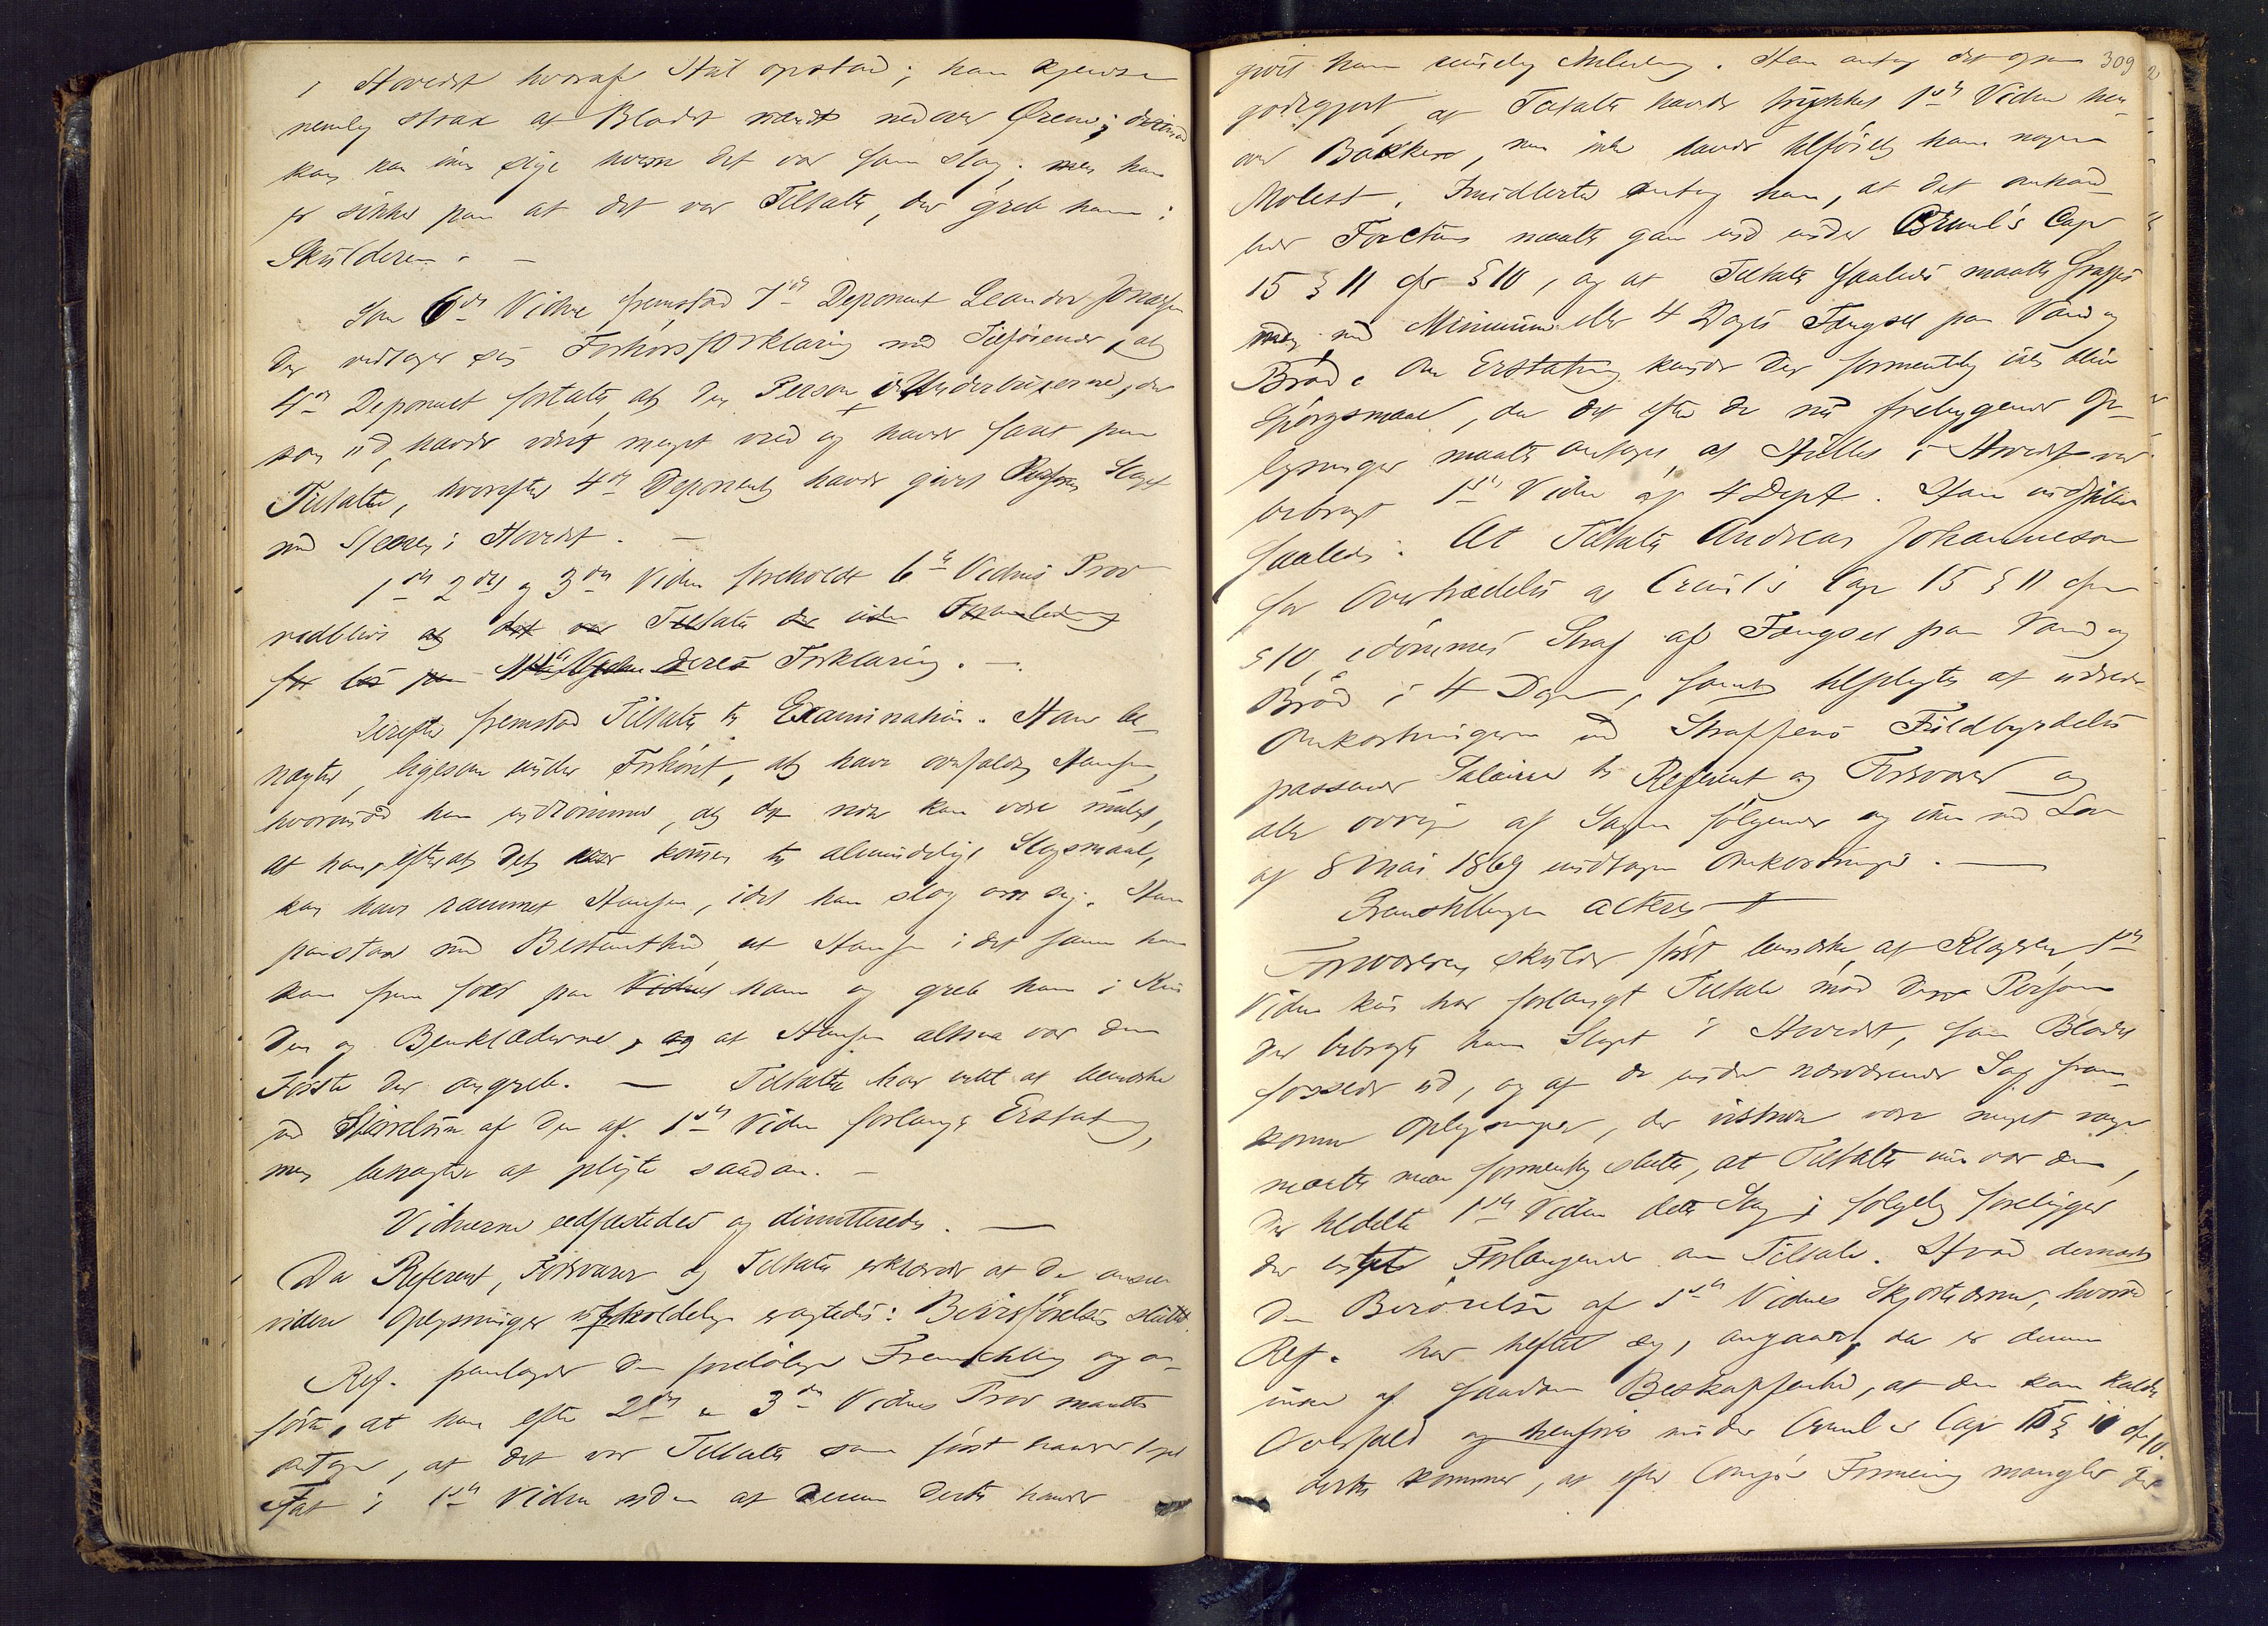 i Hovedet hvoraf Hul opstod; han kjendte
nemlig strax at Blodet randt nedover Ørene; derimod
kan han ikke sige hvem det var som slog. men han
er sikker paa at det var Tiltalte, der greb ham i
Skulderen. –
Som 6te Vidne fremstod 7de Deponent Leander Jonassen
Der vedtager sin Forhørsforklaring med Tilføiende, at
4de Deponent fortalte at den Person i Underbuxerne, der
kom ud, havde været meget vred og havde faret paa
Tiltalte, hvorefter 4de Deponent havde givet Personen Slaget
med Steenen i Hovedet. –
1ste 2det og 3die Vidne foreholdt 6te Vidnes Prov
vedblive at det var Tiltalte der uden Foranledning
for løs paa deres Forklaring. –
Derefter fremstod Tiltalte til Examination. Han be-
nægter, ligesom under Forhøret, at have overfaldt Hansen,
hvorimod han indrømmer, at det nok kan være muligt,
at han, efterat det var kommen til almindeligt Slagsmaal,
kan have rammet Hansen, idet han slog om sig. Han
paastaar med Bestemthed at Hansen i det samme han
kom frem foer paa Vidnet ham og greb ham i Kin
den og Benklæderne, og at Hansen altsaa var den
Første der angreb. – Tiltalte har intet at bemærke
ved Størrelsen af den af 1ste Vidne forlangte Erstatning,
men benægter at pligte saadan. –
Vidnerne eedfæstedes og dimitteredes. –
Da Referent, Forsvarer og Tiltalte erklærede at de ansee
videre Oplysninger uforholdelige eragtedes: Beviisførelsen sluttet.
Ref. foretager den foreløbige Fremstilling og an-
førte, at han efter 2det og 3die Vidnes Prov maatte
antage, at det var Tiltalte som først havde taget
Fat i 1ste Vidne uden at denne dertil havde
309
givet ham rimelig Anledning. Han antog det ogsaa
godtgjort, at Tiltalte havde trykket 1ste Vidne hen
over Bakken, men ikke havde tilføiet ham nogen
Molest. Imidlertid antog han, at det omhand-
lede Factum maatte gaa ind under Criml's Cap
15 § 11 cfr § 10, og at Tiltalte saaledes maatte straffes
med Minimum eller 4 Dages Fængsel paa Vand og
Brød. Om Erstatning kunde der formentlig ikke blive
Spørgsmaal, da det efter de nu foreliggende Op-
lysninger maatte antages, at Hullet i Hovedet var
bibragt 1ste Vidne af 4 Dept. Han indstiller
saaledes: At Tiltalte Andreas Johannesen
for Overtrædelse af Criml's Cap 15 § 11 cfr
§ 10, idømmes Straf af Fængsel paa Vand og
Brød i 4 Dage, samt tilpligtes at udrede
Omkostningerne ved Straffens Fuldbyrdelse
passende Salairer til Referent og Forsvarer og
alle øvrige af Sagen følgende og ikke ved Lov
af 8 Mai 1869 undtagne Omkostninger. –
Fremstillingen acteres –
Forsvareren skulde først bemærke at Klageren, 1ste
Vidne kun har forlangt Tiltale mod den Person
der bibragte ham Slaget i Hovedet, som Blodet
fossede ud, og af de under nærværende Sag frem-
komne Oplysninger, der vistnok vare meget vage
maatte man formentlig slutte, at Tiltalte ikke var den,
der tildelte 1ste Vidne dette Slag; følgelig foreligger
der intet Forlangende om Tiltale. Hvad dernæst
den Berørelse af 1ste Vidnes Skjorteærme, hvorved
Ref. har heftet sig, angaar, da er denne
ikke af saadan Beskaffenhed, at den kan kaldes
Overfald og henføres under Criml's Cap 15 § 11 cfr 10
dertil kommer, at efter Comp's Formening mangler der